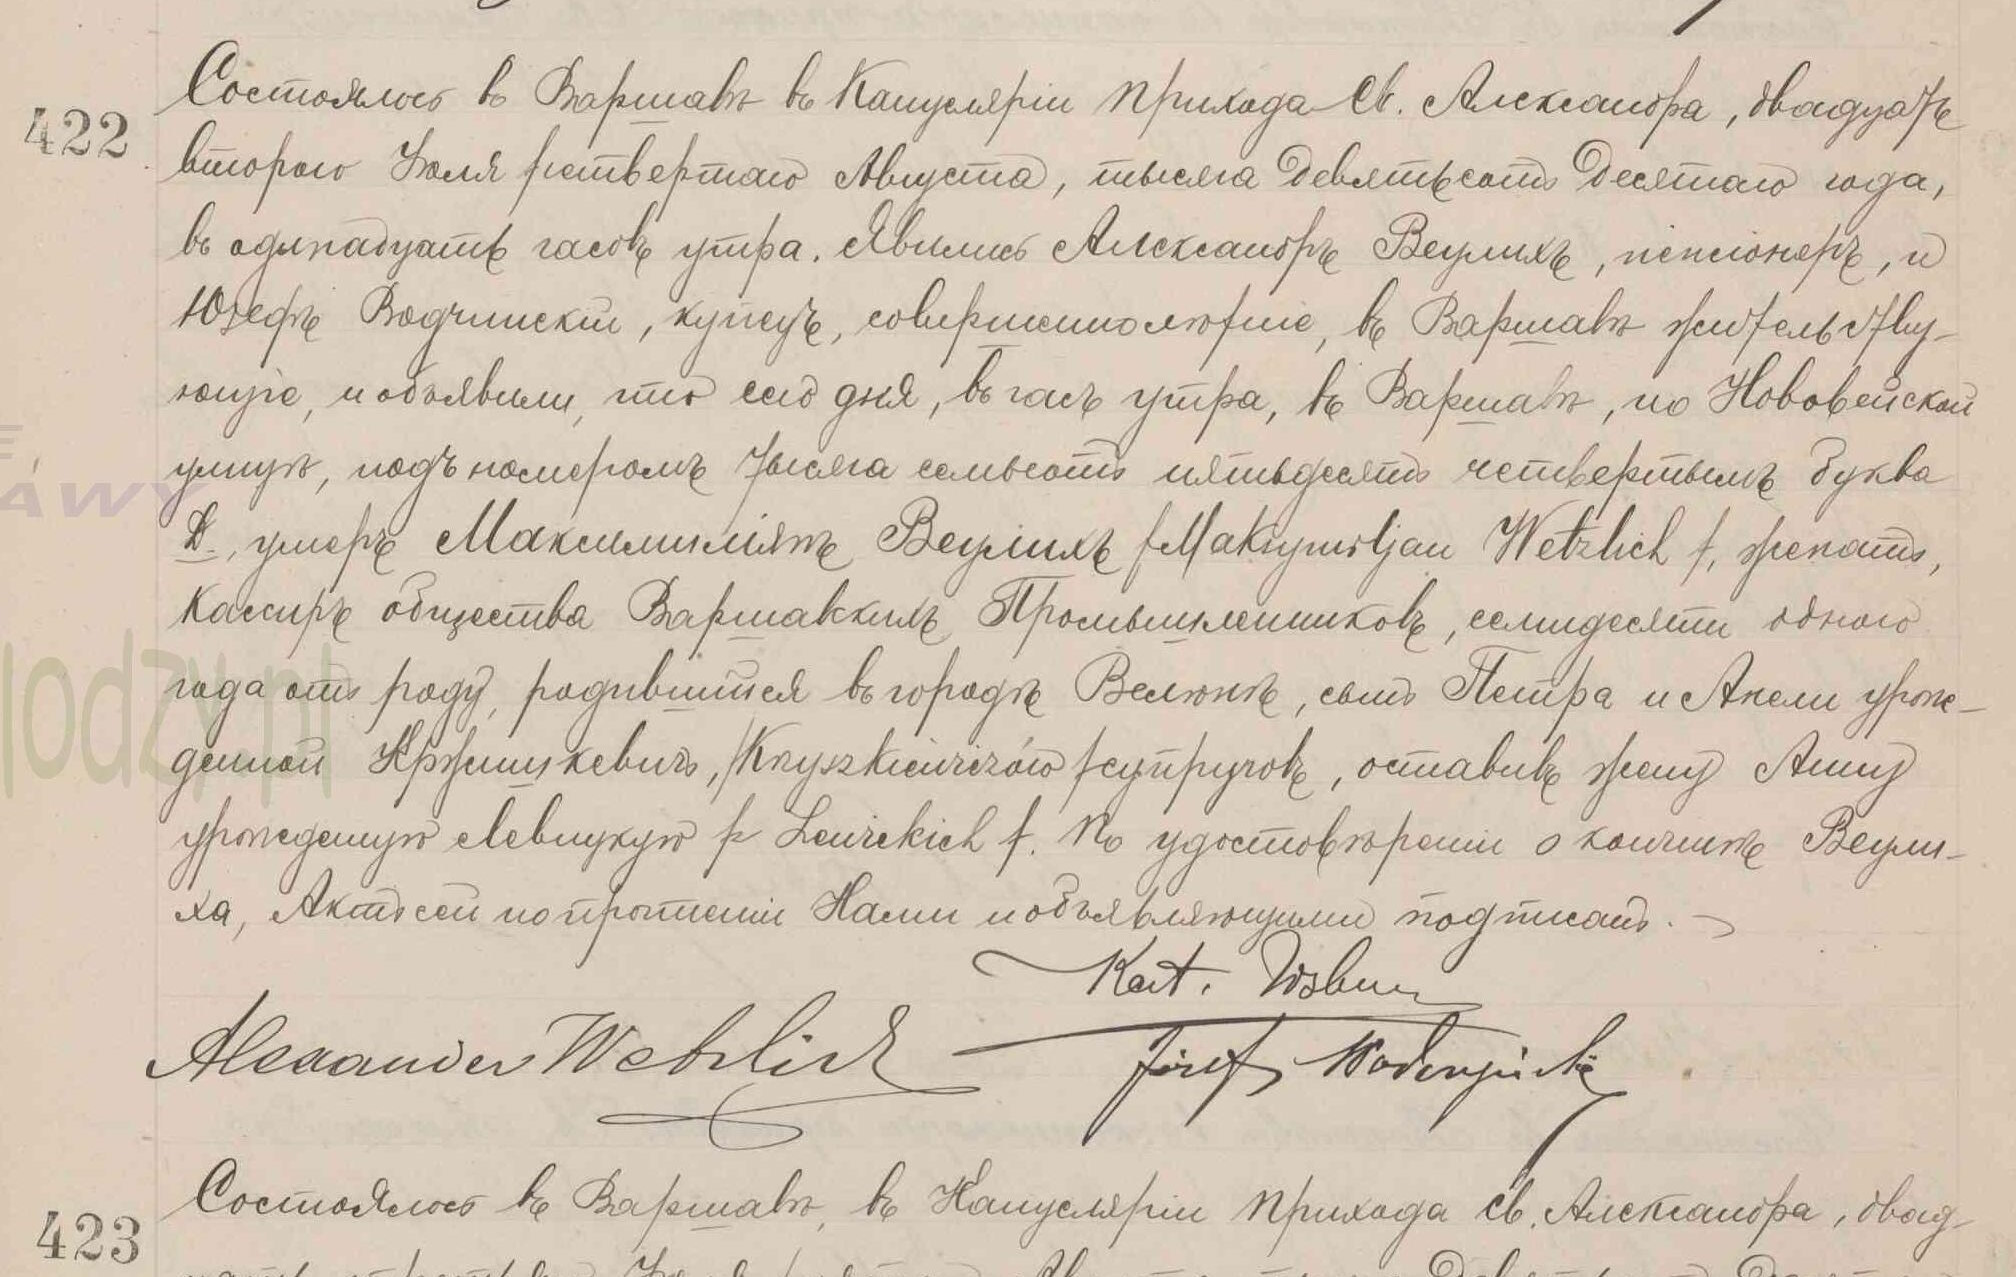 422
Состоялось въ Варшавѣ въ Канцеляріи прихода Св. Александра, двадцать
второго Іюля /четвертаго Августа, тысяча девятьсотъ десятаго года,
въ одинадцать часовъ утра. Явились Александръ Вецлихъ, пенсіонеръ, и
Юзефъ Водчинскій, купецъ, совершеннолѣтніе, въ Варшавѣ жительству-
ющіе, и объявили, что сего дня, въ часъ утра, въ Варшавѣ, по Нововейской
улицѣ, подъ номеромъ тысяча семьсотъ пятьдесятъ четвертымъ буква
Д., умеръ Максимиліянъ Вецлихъ /Maksymiljan Wetzlich/, женатъ,
кассиръ общества Варшавскихъ Промышленниковъ, семидесяти одного
года отъ роду, родившійся въ городѣ Велюнѣ, сынъ Петра и Анели урож-
денной Кржишкевичъ, /Kryszkiewiczów/ супруговъ, оставивъ жену Анну
урожденную Левицкую / Lewickich /. По удостовѣреніи о кончинѣ Вецли-
ха, Актъ сей по прочтеніи Нами и объявляющими подписанъ.
Alexander Wetzlich
Józef
423
Состоялось въ Варшавѣ, въ Канцеляріи прихода Св. Александра, двад-
lodzy.pl
AWY